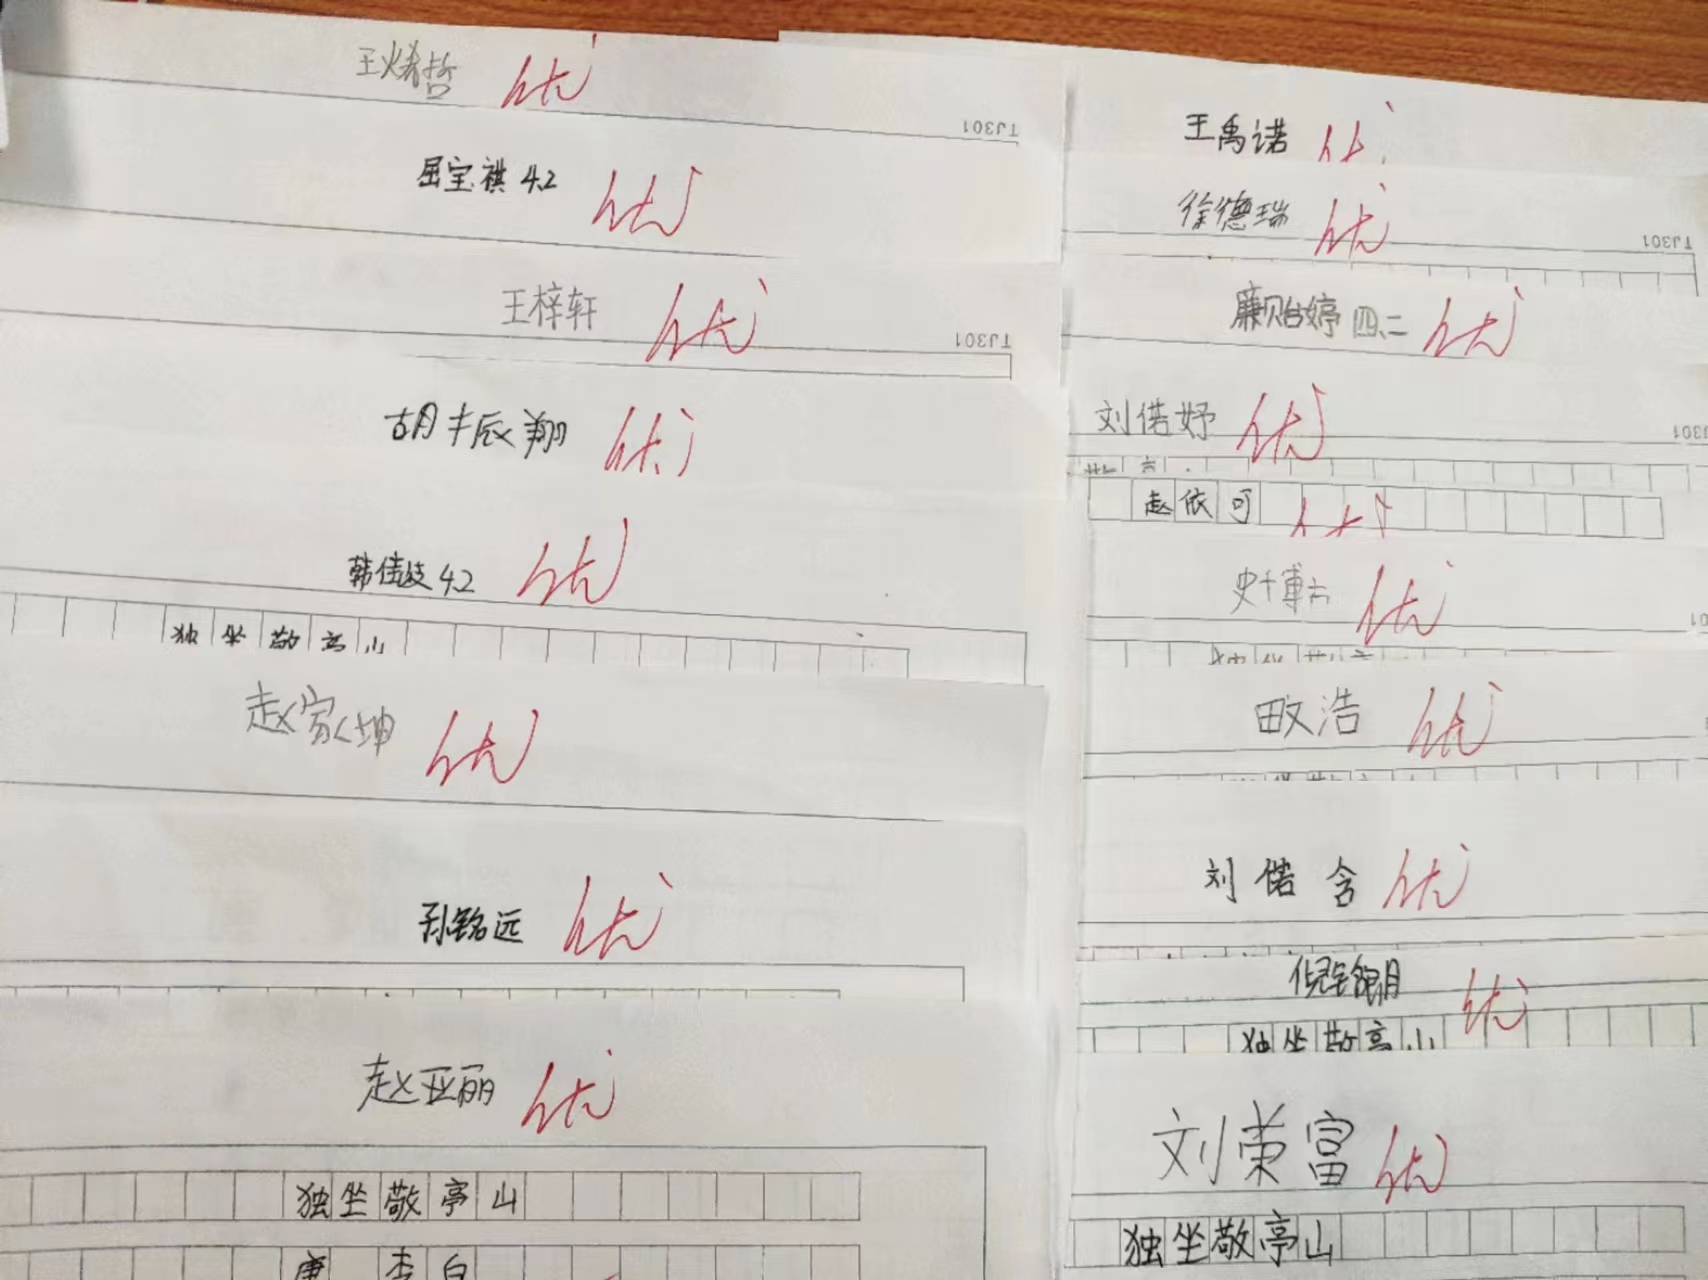 王烯哲 优
TJ301
屈宝祺 4.2 优
王梓轩 优
TJ301
胡丰辰翔 优
韩佳妓 4.2 优
独坐敬亭山
赵家坤 优
孙铭远 优
赵亚丽 优
独坐敬亭山
唐 李白
王禹诺 优
徐德瑞 优
TJ301
廉贻婷 四.二 优
刘偌妤 优
TJ301
赵依可 优
史博 优
独坐敬亭
浩 优
刘偌含 优
倪 明 优
独坐敬亭山
刘荣富 优
独坐敬亭山